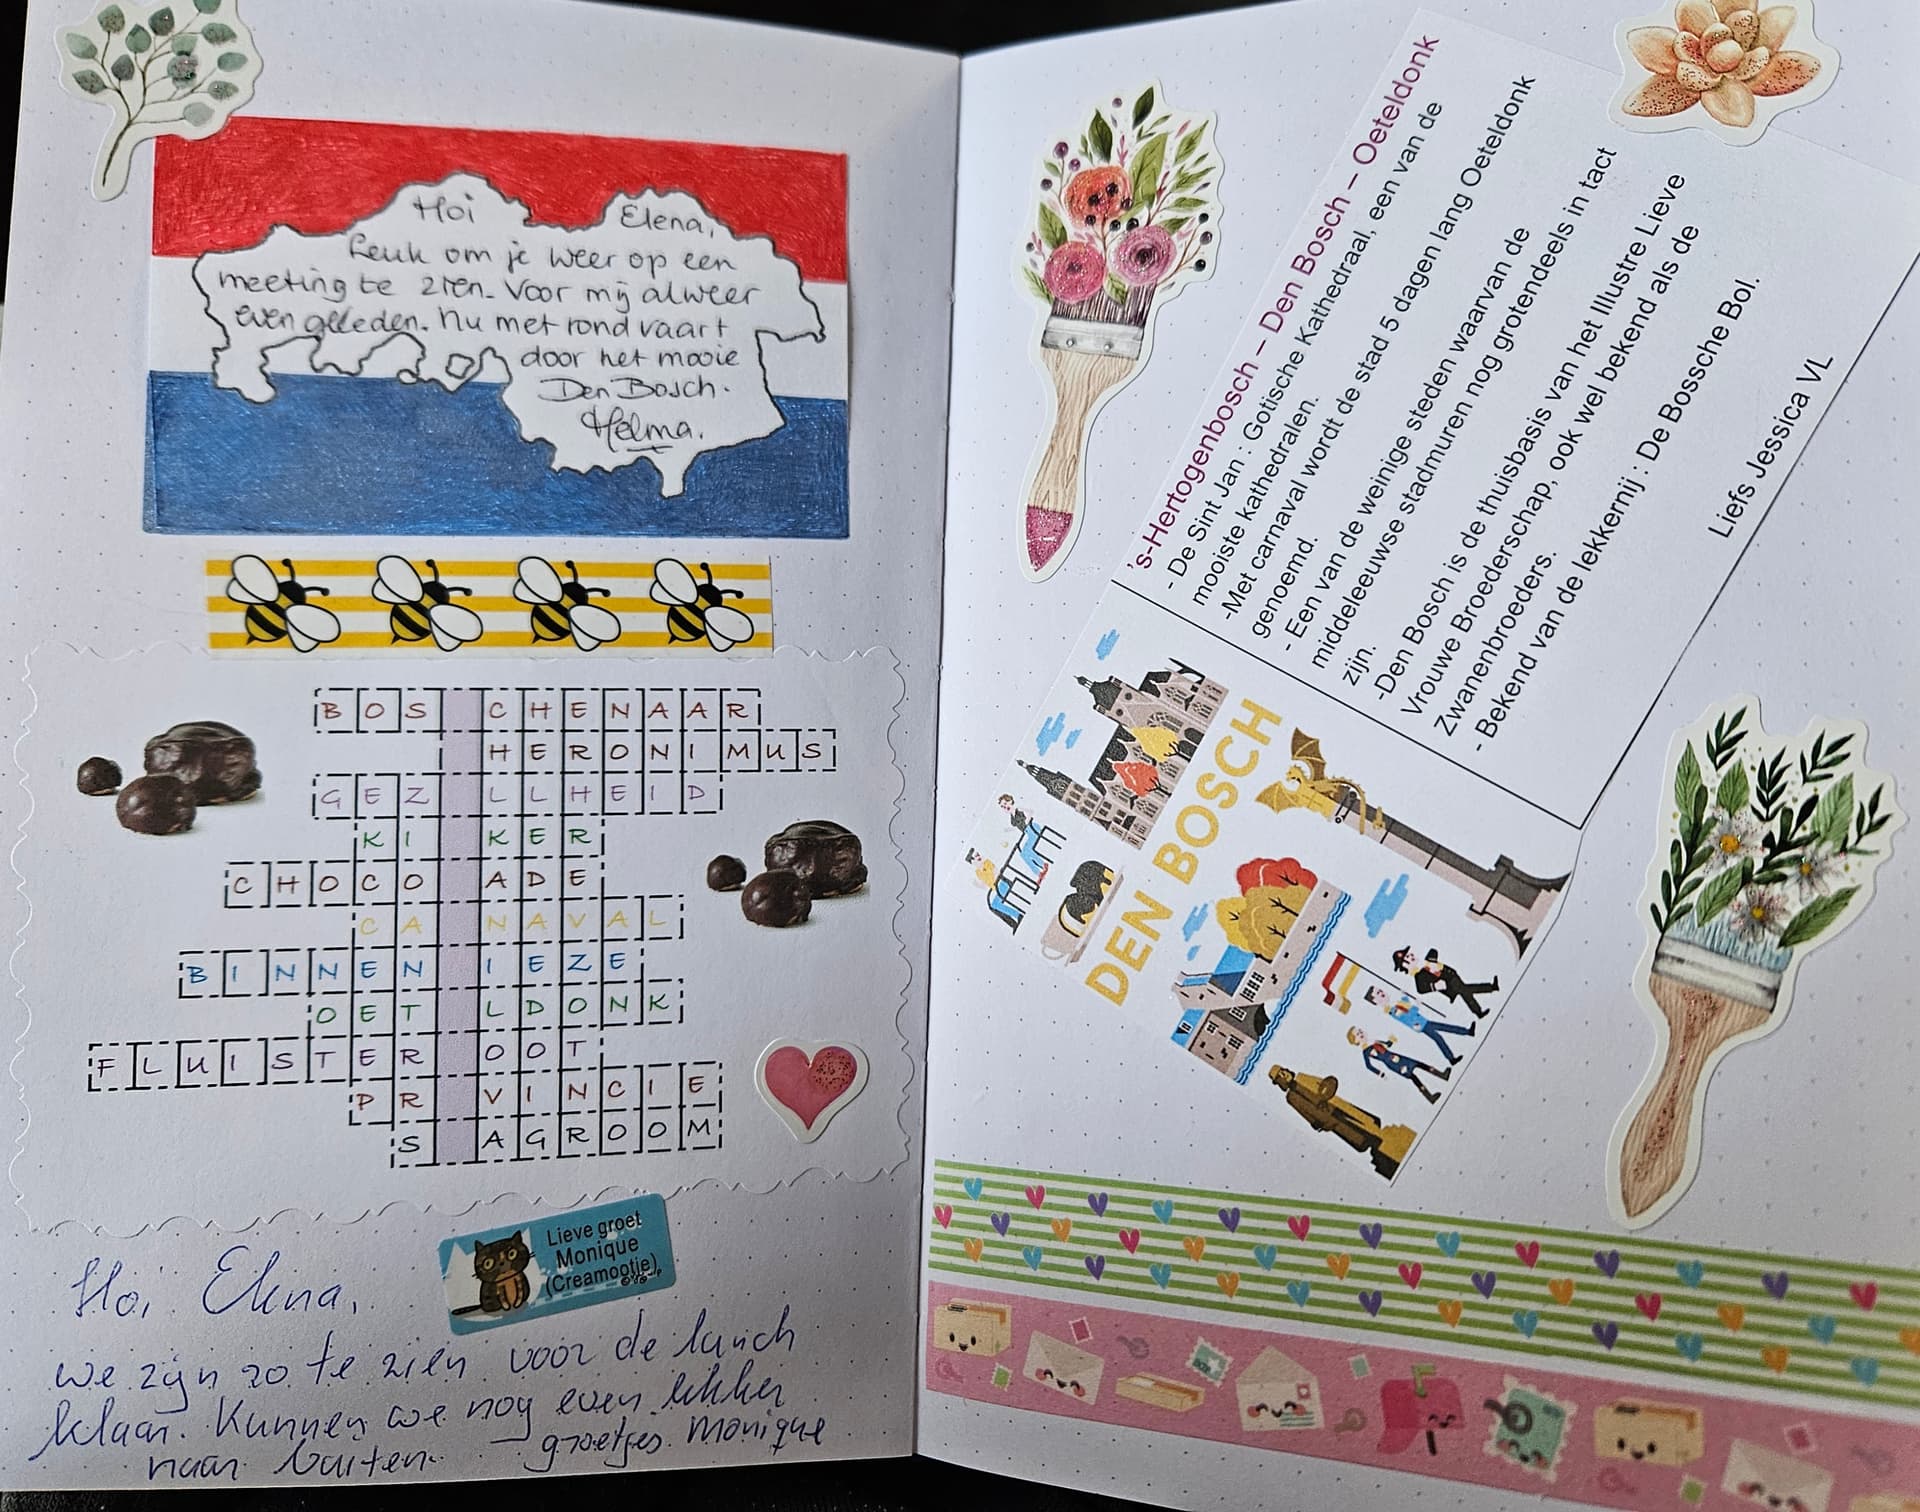 Hoi Elena,
Leuk om je weer op een
meeting te zien. Voor mij alweer
even geleden. Nu met rondvaart
door het mooie
Den Bosch.
Helma.
BOS CHENAAR
HERONIMUS
GEZ LLHEID
KI KER
CHOCO ADE
CA NAVAL
BINNEN IEZE
OET LDONK
FLUISTER OOT
PR VINCIE
S AGROOM
Lieve groet
Monique
(Creamootje)
Hoi Elena,
we zijn zo te zien voor de lunch
klaar. Kunnen we nog even lekker
naar buiten.
groetjes Monique
's-Hertogenbosch – Den Bosch – Oeteldonk
- De Sint Jan : Gotische Kathedraal, een van de
mooiste kathedralen.
-Met carnaval wordt de stad 5 dagen lang Oeteldonk
genoemd.
- Een van de weinige steden waarvan de
middeleeuwse stadmuren nog grotendeels in tact
zijn.
-Den Bosch is de thuisbasis van het Illustre Lieve
Vrouwe Broederschap, ook wel bekend als de
Zwanenbroeders.
- Bekend van de lekkernij : De Bossche Bol.
Liefs Jessica VL
DEN BOSCH